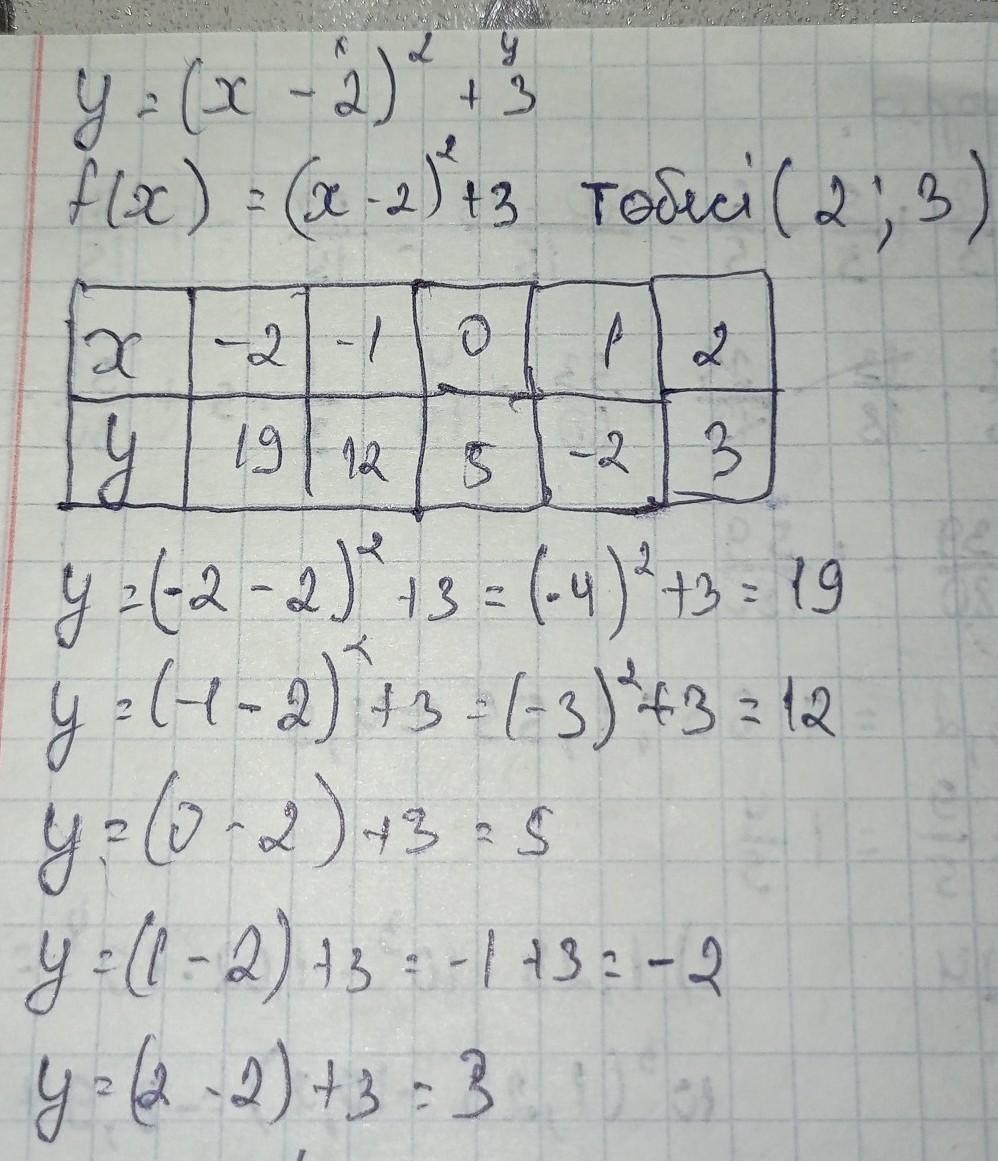 y = (x - 2)² + 3
x y
f(x) = (x - 2)² + 3 төбесі (2; 3)
x -2 -1 0 1 2
y 19 12 5 -2 3
y = (-2 - 2)² + 3 = (-4)² + 3 = 19
y = (-1 - 2)² + 3 = (-3)² + 3 = 12
y = (0 - 2) + 3 = 5
y = (1 - 2) + 3 = -1 + 3 = -2
y = (2 - 2) + 3 = 3